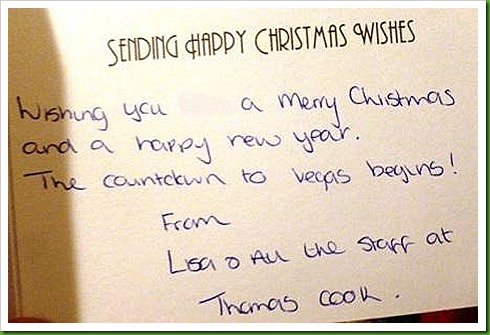 SENDING HAPPY CHRISTMAS WISHES
Wishing you a merry Christmas
and a happy new year.
The countdown to vegas begins!
From
Lisa & All the staff at
Thomas Cook.